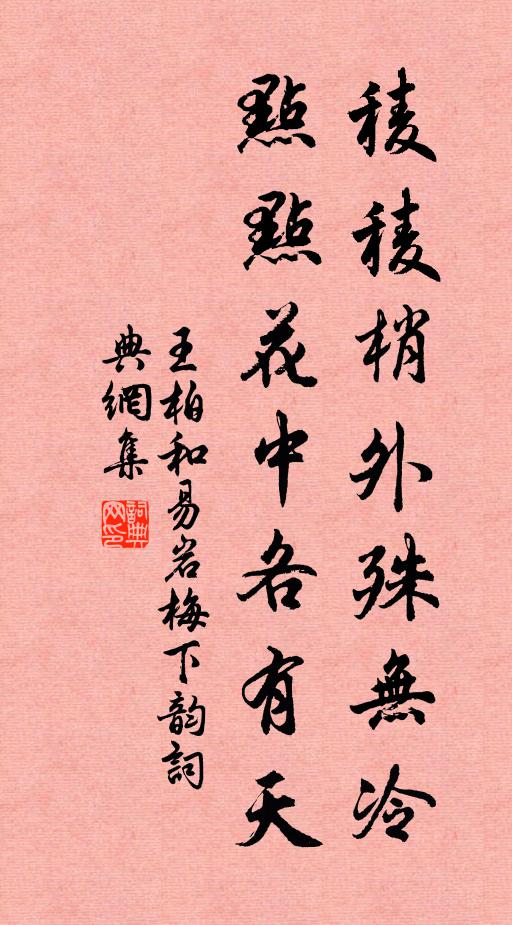 稜稜梢外殊無冷
點點花中各有天
王柏和易岩梅下韵詞
典網集
詞典网印